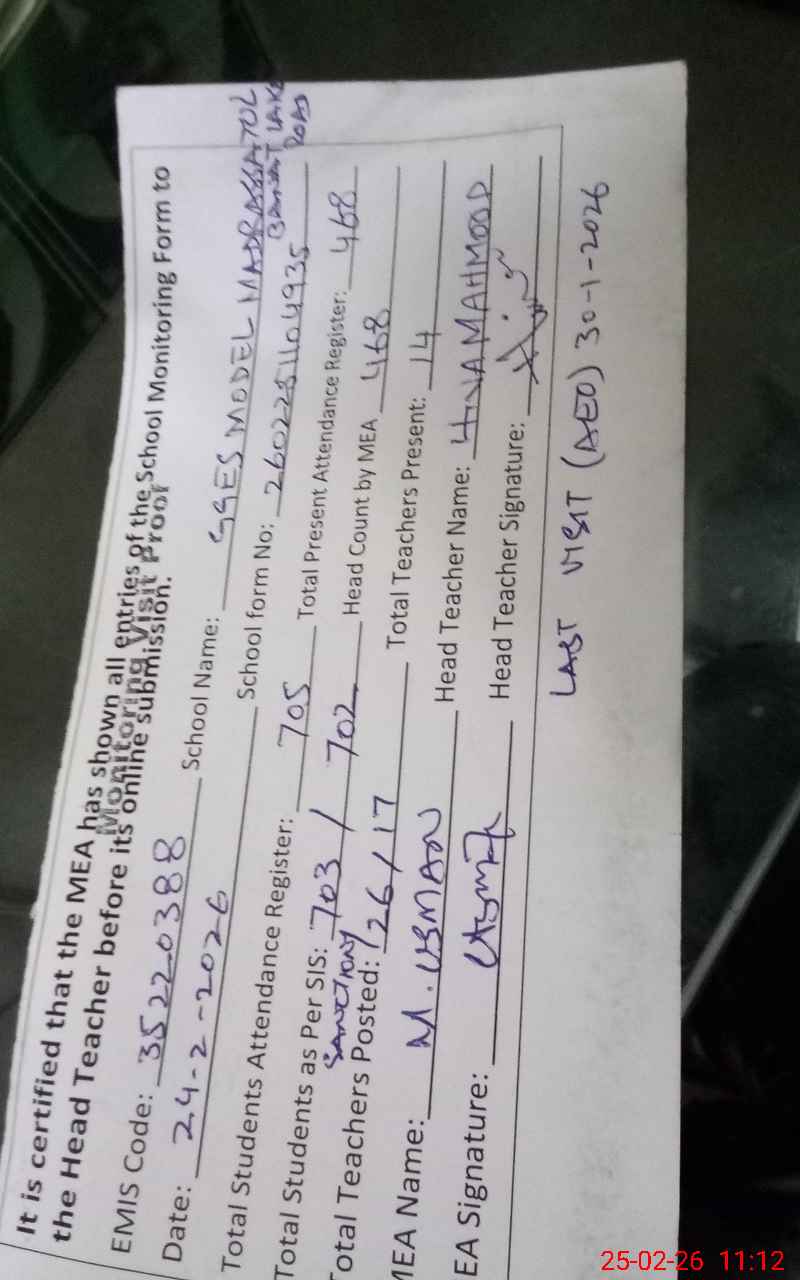 It is certified that the MEA has shown all entries of the School Monitoring Form to
the Head Teacher before its online submission.
Monitoring Visit Proof
EMIS Code: 35220388 School Name: GGES MODEL MADRASSATUL
BANAT LAKE
ROAD
Date: 24-2-2026 School form No:
Total Students Attendance Register: 705 Total Present Attendance Register: 468
Total Students as Per SIS: 703 / 702 Head Count by MEA 468
SANCTION
Total Teachers Posted: 26/17 Total Teachers Present: 14
MEA Name: M. USMAN Head Teacher Name: HINA MAHMOOD
EA Signature: Head Teacher Signature:
LAST VISIT (AEO) 30-1-2026
25-02-26 11:12